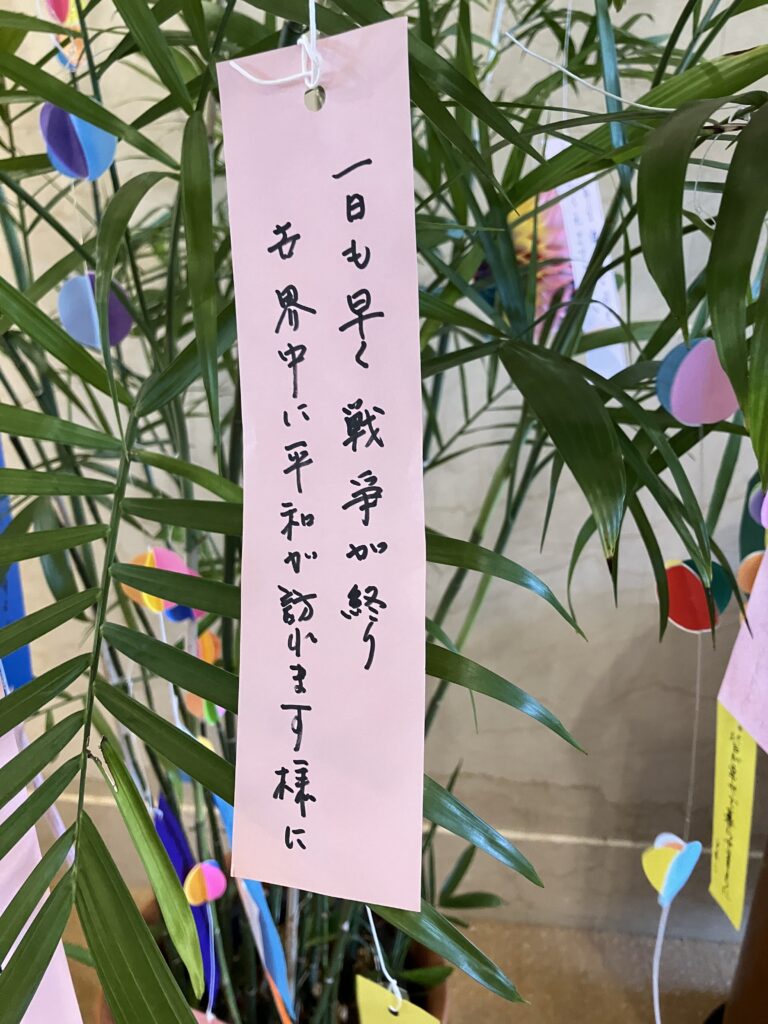 一日も早く戦争が終り
世界中に平和が訪れます様に